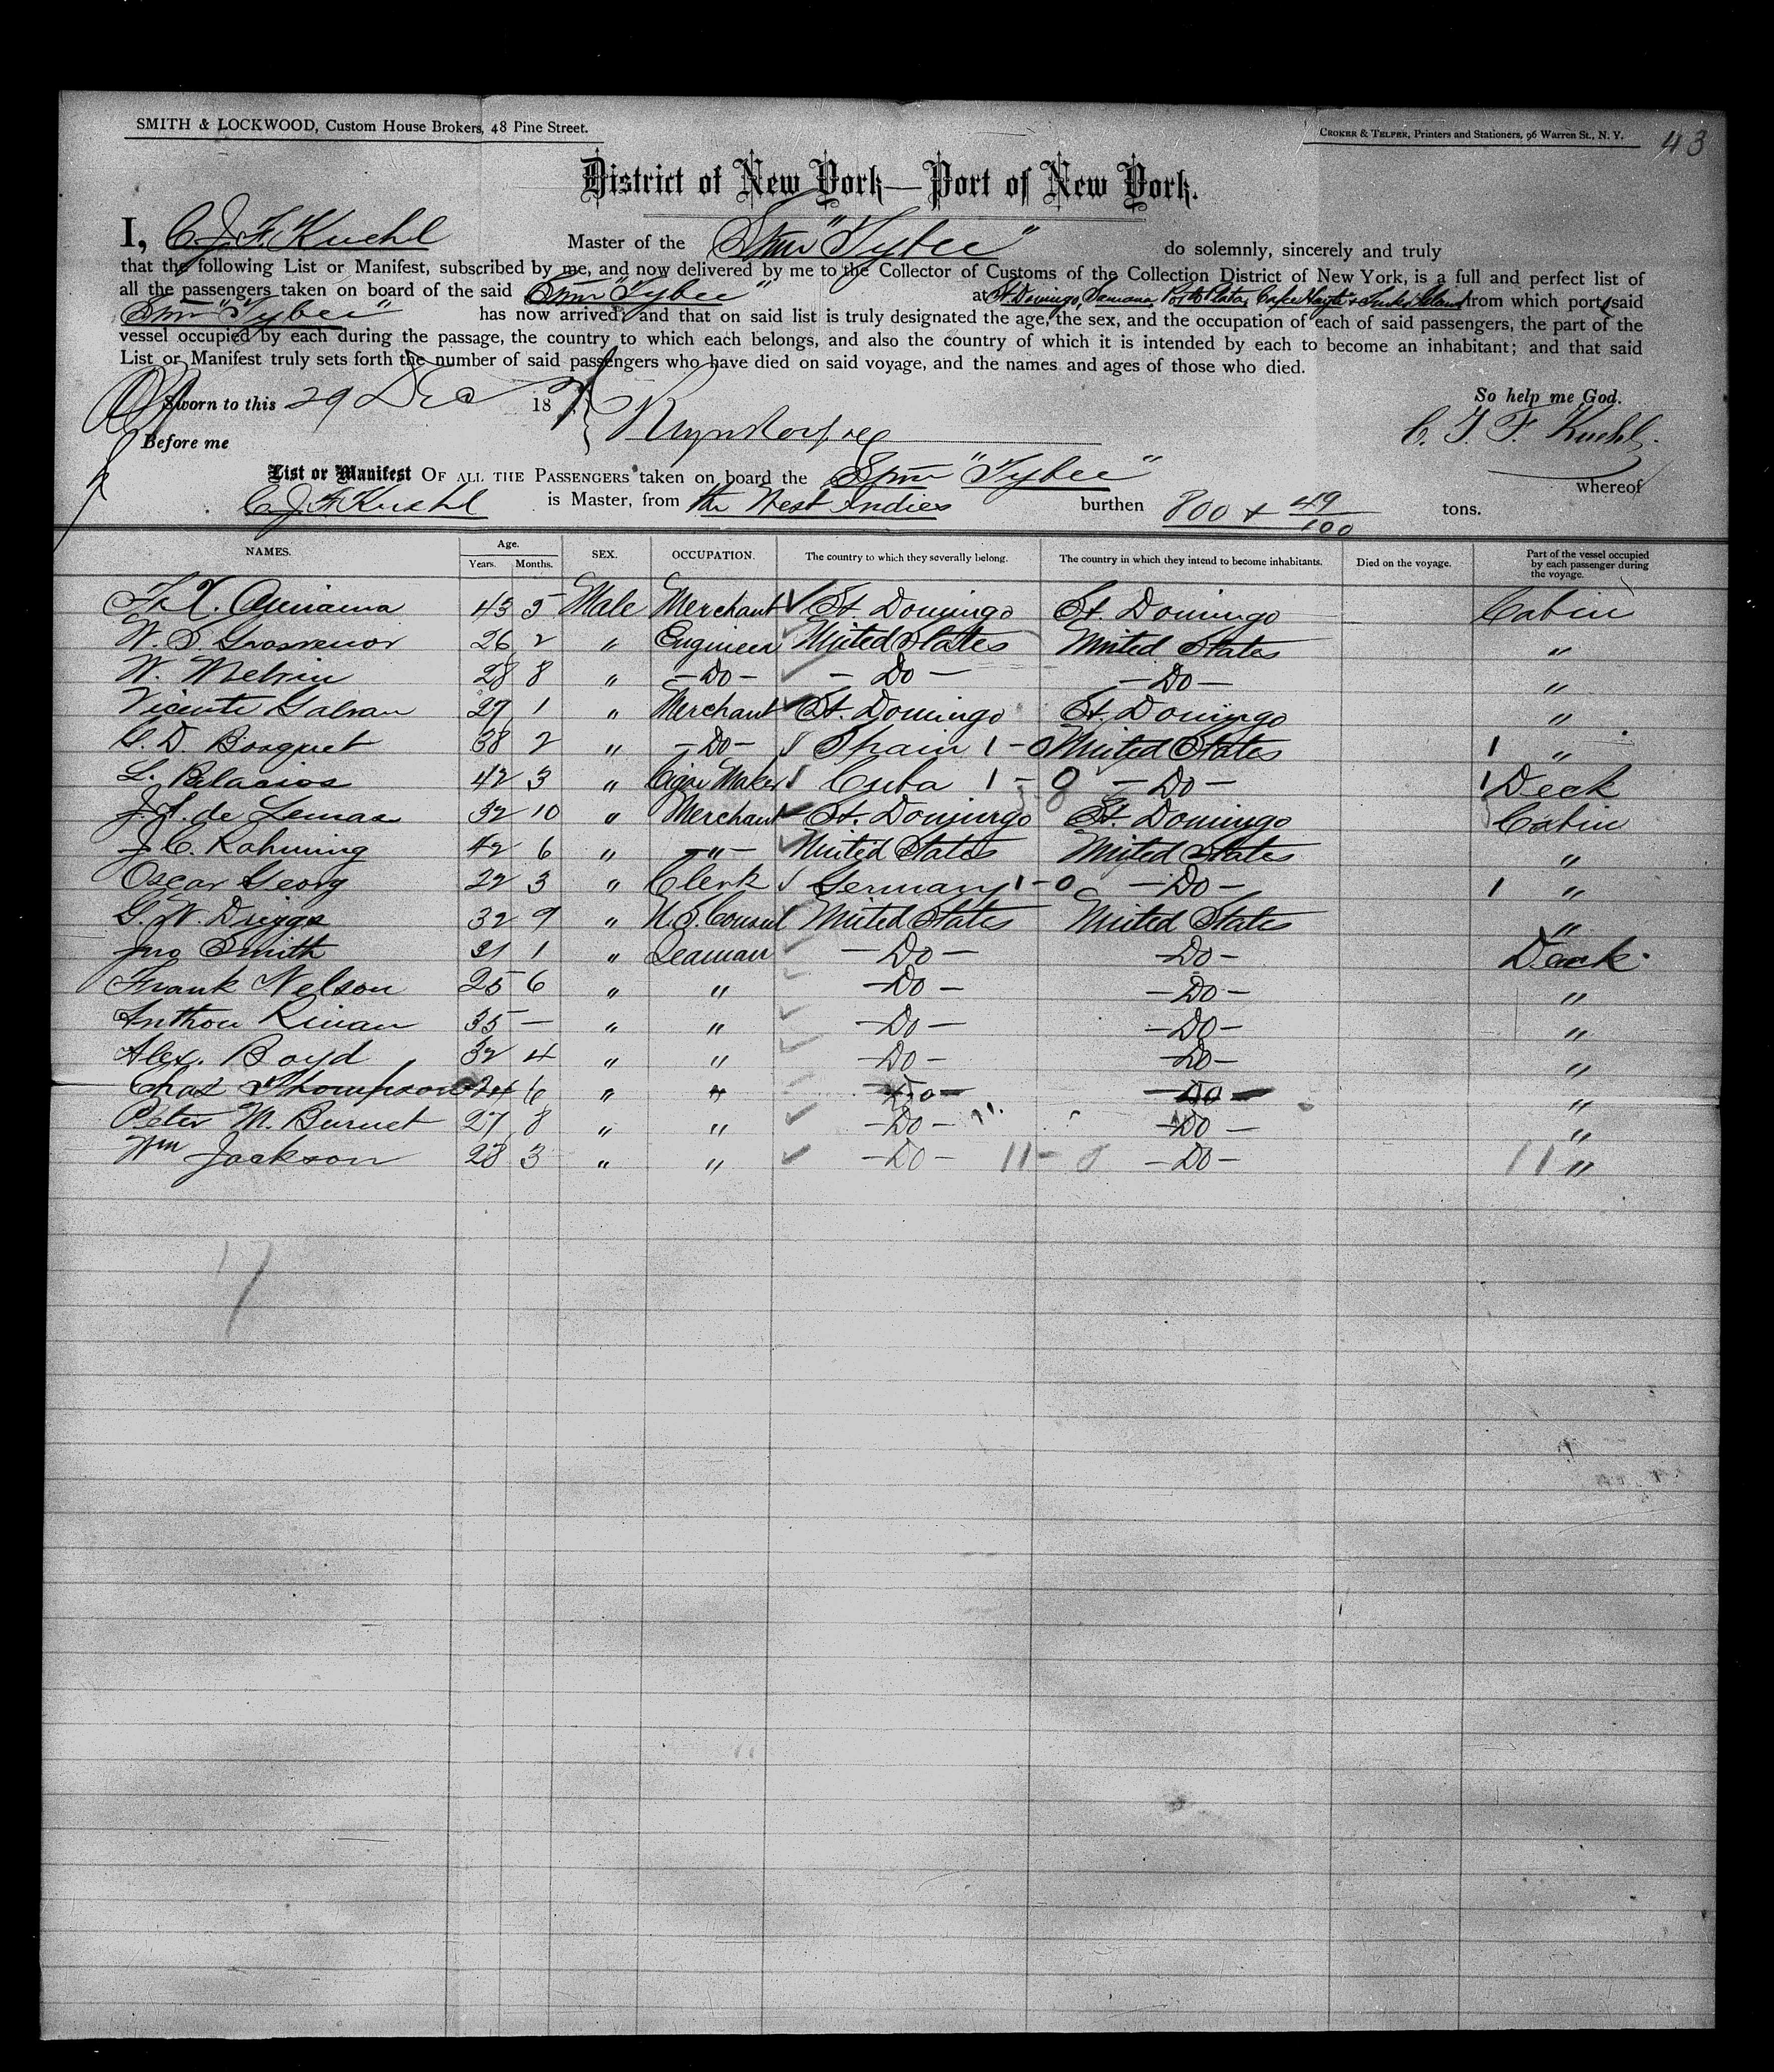 SMITH & LOCKWOOD, Custom House Brokers, 48 Pine Street.
CROKER & TELFER, Printers and Stationers, 96 Warren St., N. Y.
43
District of New York—Port of New York.
I, C. J. F. Kuehl Master of the Stmr "Tybee" do solemnly, sincerely and truly
that the following List or Manifest, subscribed by me, and now delivered by me to the Collector of Customs of the Collection District of New York, is a full and perfect list of
all the passengers taken on board of the said Stmr "Tybee" at St. Domingo, Samana Porto Plata, Cape Hayti & Turks Island from which port said
Stmr "Tybee" has now arrived; and that on said list is truly designated the age, the sex, and the occupation of each of said passengers, the part of the
vessel occupied by each during the passage, the country to which each belongs, and also the country of which it is intended by each to become an inhabitant; and that said
List or Manifest truly sets forth the number of said passengers who have died on said voyage, and the names and ages of those who died.
So help me God.
Sworn to this 29 Dec 187
C. J. F. Kuehl
Before me
List or Manifest OF ALL THE PASSENGERS taken on board the Stmr "Tybee" whereof
C. J. F. Kuehl is Master, from the West Indies burthen 800 & 49/100 tons.
NAMES. Age. Years. Months. SEX. OCCUPATION. The country to which they severally belong. The country in which they intend to become inhabitants. Died on the voyage. Part of the vessel occupied by each passenger during the voyage.
43 5 Male Merchant St. Domingo St. Domingo Cabin
W. S. Grosvenor 26 2 " Engineer United States United States "
W. Melvin 28 8 " —Do— —Do— —Do— "
Vicente Galvan 27 1 " Merchant St. Domingo St. Domingo "
G. D. Bosquet 38 2 " —Do— Spain 1 - 0 United States 1 "
L. Palacios 42 3 " Cigar Maker Cuba 1 - 0 —Do— 1 Deck
J. H. de Lemas 32 10 " Merchant St. Domingo St. Domingo Cabin
J. C. Rahming 42 6 " —"— United States United States "
Oscar Georg 22 3 " Clerk Germany 1 - 0 —Do— 1 "
G. W. Driggs 32 9 " U. S. Consul United States United States "
Jno Smith 21 1 " Seaman —Do— —Do— Deck
Frank Nelson 25 6 " " —Do— —Do— "
Anthou Rivan 35 — " " —Do— —Do— "
Alex. Boyd 32 4 " " —Do— —Do— "
Chas Thompson 24 6 " " —Do— —Do— "
Peter M. Burnet 27 8 " " —Do— —Do— "
Wm Jackson 28 3 " " —Do— 11 - 0 —Do— 11 "
17